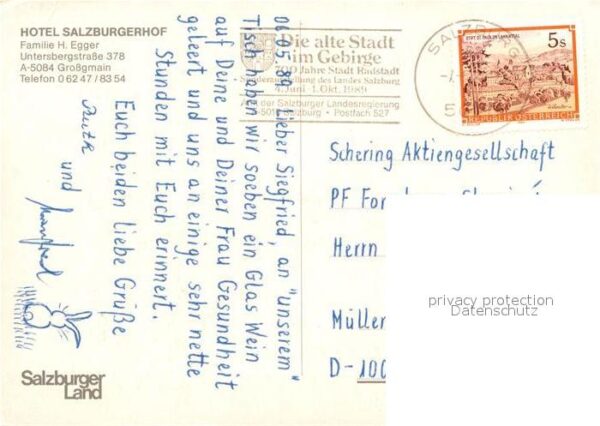 HOTEL SALZBURGERHOF
Familie H. Egger
Untersbergstraße 378
A-5084 Großgmain
Telefon 0 62 47 / 83 54
Die alte Stadt
im Gebirge
Jahre Stadt Radstadt
des Landes Salzburg
4. Juni - 1. Okt. 1989
der Salzburger Landesregierung
Salzburg • Postfach 527
5s
STIFT ST. PAUL IM LAVANTTAL
REPUBLIK ÖSTERREICH
06.05.89 Lieber Siegfried, an "unserem"
Tisch haben wir soeben ein Glas Wein
auf Deine und Deiner Frau Gesundheit
geleert und uns an einige sehr nette
Stunden mit Euch erinnert.
Euch beiden liebe Grüße
und
Manfred
Schering Aktiengesellschaft
PF
Herrn
Müller
D-100
privacy protection
Datenschutz
Salzburger
Land